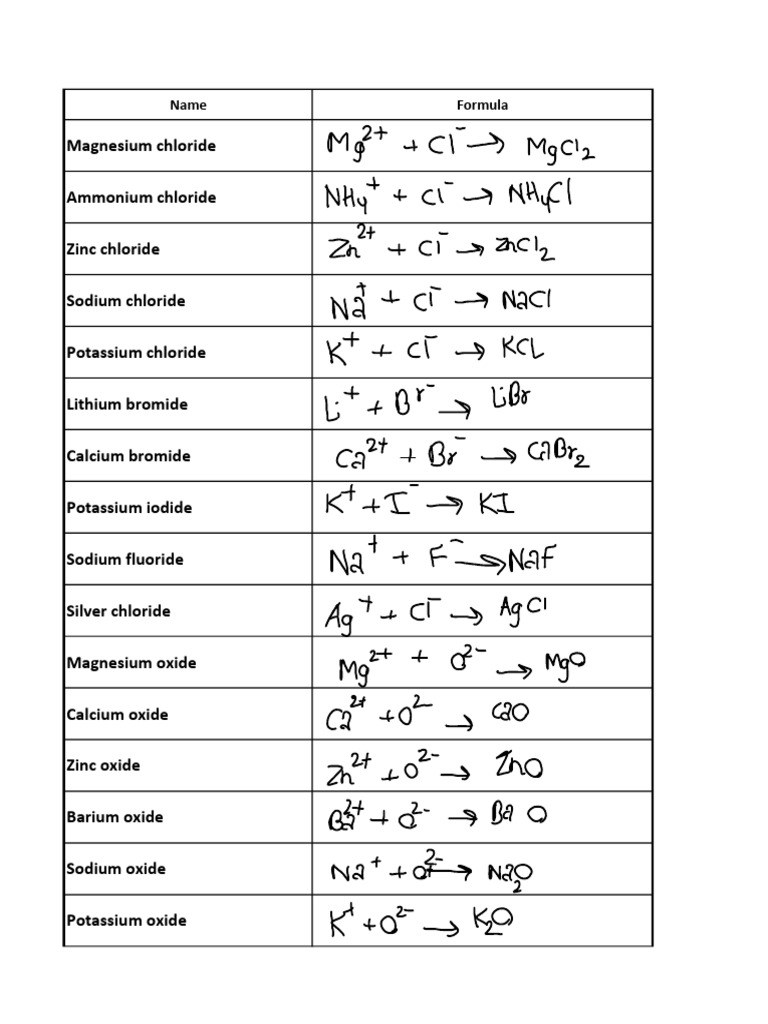 Name Formula
Magnesium chloride Mg²⁺ + Cl⁻ → MgCl₂
Ammonium chloride NH₄⁺ + Cl⁻ → NH₄Cl
Zinc chloride Zn²⁺ + Cl⁻ → ZnCl₂
Sodium chloride Na⁺ + Cl⁻ → NaCl
Potassium chloride K⁺ + Cl⁻ → KCL
Lithium bromide Li⁺ + Br⁻ → LiBr
Calcium bromide Ca²⁺ + Br⁻ → CaBr₂
Potassium iodide K⁺ + I⁻ → KI
Sodium fluoride Na⁺ + F⁻ → NaF
Silver chloride Ag⁺ + Cl⁻ → AgCl
Magnesium oxide Mg²⁺ + O²⁻ → MgO
Calcium oxide Ca²⁺ + O²⁻ → CaO
Zinc oxide Zn²⁺ + O²⁻ → ZnO
Barium oxide Ba²⁺ + O²⁻ → Ba O
Sodium oxide Na⁺ + O²⁻ → Na₂O
Potassium oxide K⁺ + O²⁻ → K₂O